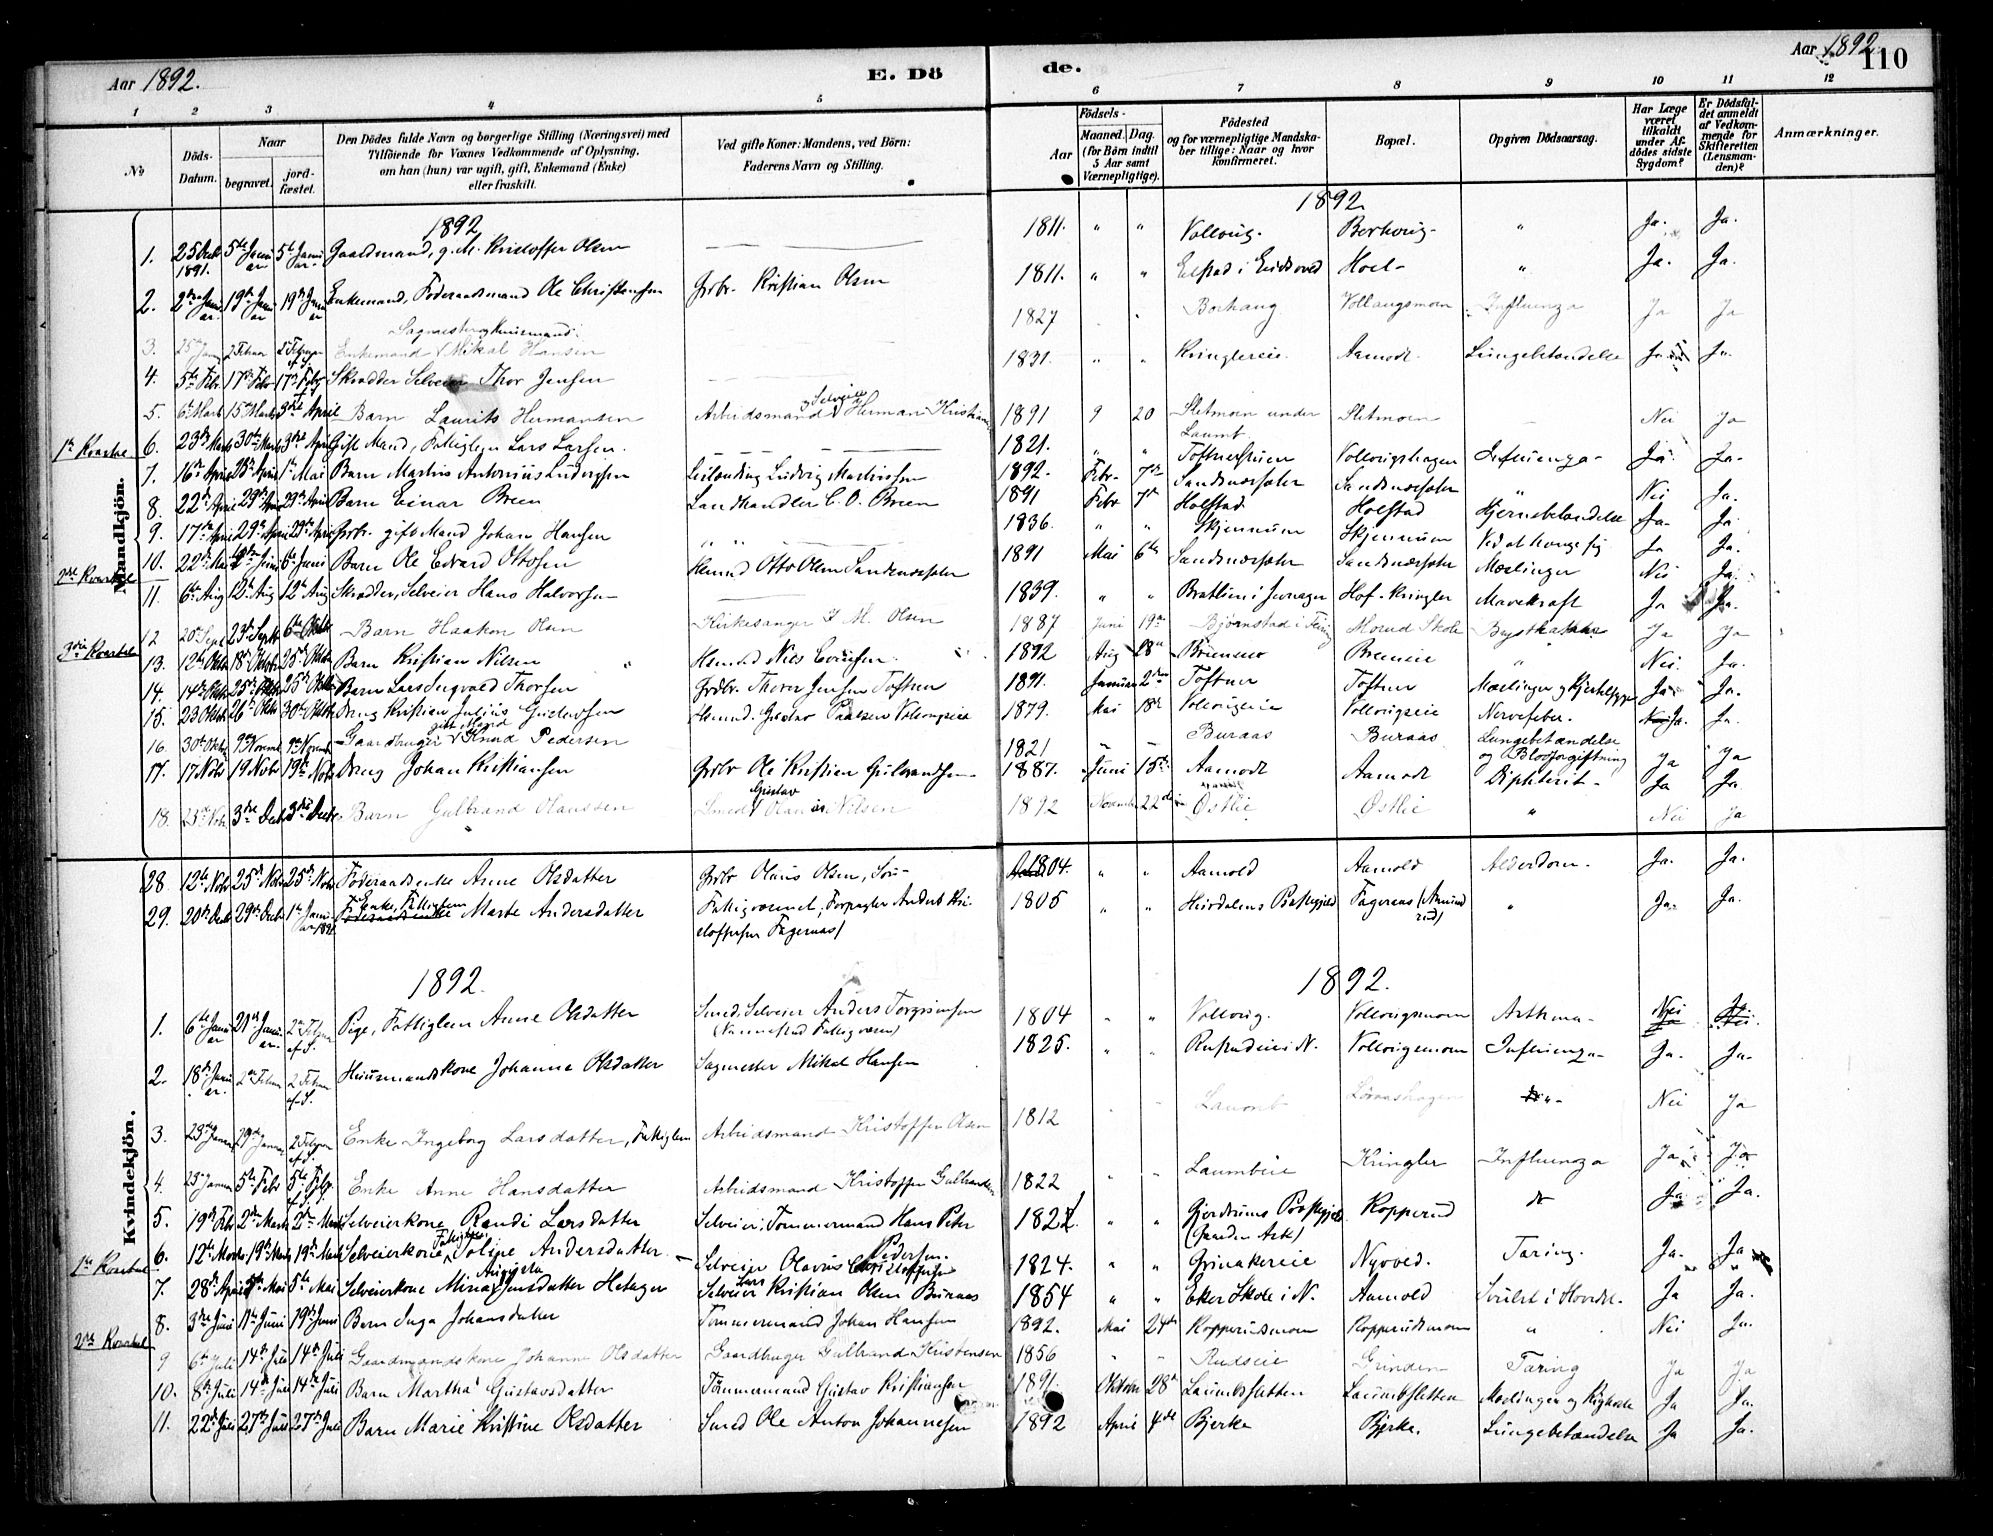 Aar 1892. E. Dö
de. Aar 1892. 110
1 2 3 4 5
6 7 8 9 10 11 12
No
Döds-Datum.
Naar begravet. jordfæstet.
Den Dödes fulde Navn og borgerlige Stilling (Næringsvei) med Tilföiende for Voxnes Vedkommende af Oplysning, om han (hun) var ugift, gift, Enkemand (Enke) eller fraskilt.
Ved gifte Koner: Mandens, ved Börn: Faderens Navn og Stilling.
Födsels-
Aar Maaned. Dag.
(for Börn indtil 5 Aar samt Værnepligtige).
Födested og for værnepligtige Mandskaber tillige: Naar og hvor konfirmeret.
Bopæl.
Opgiven Dödsaarsag.
Har Læge været tilkaldt under Afdödes sidste Sygdom?
Er Dödsfaldet anmeldt af Vedkommende for Skifteretten (Lensmanden)?
Anmærkninger.
Mandkjön.
1892 1892.
1. 25 Decb 1891. 5te Januar 5te Januar Gaardmand, g. M. Kristoffer Olsen 1811. " " Vollaug. Borhaug " Ja. Ja.
2. 2den Januar 19de Januar 19de Januar Enkemand, Föderaadsmand Ole Christensen Grdbr. Kristian Olsen 1811. " " i Eidsvold Hoel " Ja. Ja.
3. 25 Januar 2 Februar Enkemand Mikal Hansen 1827 Borhaug Vollaugsmoen Influenza Ja Ja
4. 5te Febr. 17de Febr 17de Febr Skrædder Selveier Thor Jensen 1831. " " Kringlereie. Aamodt. Lungebetændelse Ja Ja.
5. 6te Marts 15 Marts 3die April Barn Laurits Hermansen Arbeidsmand og Selveier Herman Kristian 1891 9 20 Sletmoen under Laumb. Sletmoen Nei Ja
1ste Kvartal 6. 23de Marts 30te Marts 3die April Gift Mand, Fattiglem Lars Larsen. 1821. " " Toftnerstuen Vollaugshagen Influenza Ja. Ja.
7. 16de April 28de April 1ste Mai Barn Martin Antonius Ludvigsen Leilænding Ludvig Martinsen 1892. Febr. 7de Sandsnæsseter Sandsnæsseter " Nei Ja.
8. 22de April 29de April 29de April Barn Einar Breen Landhandler C. O. Breen 1891 Febr 7de Holstad Holstad Hjernebetændelse Ja. Ja.
9. 17de April 29de April 29de April Grdbr. gift Mand Johan Hansen 1836. " " Skjennum Skjennum Ved at hænge sig Ja Ja.
2det Kvartal 10. 22de Mai 6te Juni 6te Juni Barn Ole Edvard Ottosen Hsmd Otto Olsen Sandsnæsseter 1891 Mai 6te Sandsnæsseter Sandsnæsseter Mæslinger Nei Ja.
11. 6te Aug 12te Aug 12te Aug Skrædder, Selveier Hans Halvorsen 1839. " " Bratlien i Jevnager Hof-Kringler Mavekræft Ja Ja.
3die Kvartal 12 20de Sept 23de Sept 6te Oktbr Barn Haakon Olsen Kirkesanger I. M. Olsen 1887 Juni 19de Björnstad i Horud Skole Brystkatarrh Ja Ja
13. 12te Oktbr 18de Oktbr 25de Oktbr Barn Kristian Nilsen Hsmd Nils Evensen. 1892 Aug 28de " Nei. Ja.
14. 14de Oktbr 25de Oktbr 25de Oktbr Barn Lars Ingvald Thorsen Grdbr. Thorer Jensen Toftner 1891. Januar 2den Toftner Toftner Mæslinger og Ja. Ja.
15. 23 Oktbr 26de Oktbr 30te Oktbr Dreng Kristian Julius Gustavsen Hsmd. Gustav Paulsen Vollaugseie 1879. Mai 18de Vollaugseie Vollaugseie Nervefeber. Ja. Ja.
16. 30te Oktbr 9de Novmb 9de Novmb Gaardbruger gift Mand Knud Pedersen 1821 " " Buraas Buraas Lungebetændelse og Blodforgiftning Ja Ja
17. 17 Novbr 19 Novbr 19de Novbr Dreng Johan Kristiansen Grdbr Ole Kristian Gulbrandsen 1887. Juni 15de Aamodt Aamodt Diphterit Ja Ja
18. 23de Novbr 3die Decbr 3die Decbr. Barn Gulbrand Olaussen Smed Gustav Olaus Nilsen 1892 November 22de Östlie Östlie " Nei Ja
Kvindekjön.
28. 12te Novbr 25de Novbr 25de Novbr Föderaadsenke Anne Olsdatter Grdbr Olaus Olsen, Sön 1804. " " Aamold Aamold Alderdom. Ja. Ja.
29. 20de Decbr 29de Decbr 1ste Januar 1892 Enke, Fattiglem Marte Andersdatter Fattigvæsenet, Forpagter Anders Kristoffersen Fagernæs) 1805 " " Hurdalens Præstegjeld Fageraas (Aamund rud) " Ja. Ja.
1892. 1892.
1. 6te Januar 21de Januar 2den Februar Pige, Fattiglem Anne Olsdatter Smed, Selveier Anders Torgrimsen (Nannestad Fattigvæsen) 1804 " " Vollaug. Vollaugsmoen Asthma Nei
2. 18de Januar 2den Februar 2 Februar Huusmandskone Johanne Olsdatter Sagmester Mikal Hansen 1825. " " Rustadeie i N. Vollaugsmoen Influenza Ja. Ja.
3. 23de Januar 29de Januar Enke Ingeborg Larsdatter, Fattiglem Arbeidsmand Kristoffer Olsen 1812 Laumb " Nei Ja
4. 25 Januar 5te Febr 5te Febr Enke Anne Hansdatter Arbeidsmand Kristoffer Gulbrandsen 1822 Laumbeie Kringler Influenza Ja Ja
5. 19de Febr 2den Marts 2den Marts Selveierkone Randi Larsdatter Selveier, Tømmermand Hans Peter Pedersen. 182 " " Gjerdrums Præstegjeld (Gaarden Ask) Kopperud do Ja Ja.
1ste Kvartal 6. 12te Marts 19de Marts 19de Marts Selveierkone Fattiglem Andersdatter Selveier Olavus Christoffersen 1824. " " Grinakereie Nyrved. Tæring. Ja. Ja
7. 28de April 5te Mai 5te Mai Selveierkone Mina Augusta Jensdatter Selveier Lars Kristian Olsen 1854 " " Eker Skole i N. Aamold Svulst i Hovdet. Ja Ja.
2det Kvartal 8. 3die Juni 11te Juni 19de Juni Barn Inga Johansdatter Tømmermand Johan Hansen 1892. Mai 24de Kopperudsmoen Kopperudsmoen " Nei Ja.
9 6te Juli 14de Juli 14de Juli Gaardmandskone Johanne Olsdatter Gaardbruger Gulbrand Kristensen 1856 " " Rudseie Grinden Tæring Ja Ja
10. 8de Juli 14de Juli 14de Juli Barn Martha Gustavsdatter Tømmermand Gustav Kristiansen 1891. Oktober 28de Laumbsletten Laumbsletten Mæslinger og Kighoste Ja Ja.
11. 22de Juli 27de Juli 27de Juli Barn Marie Kristine Olsdatter Smed Ole Anton Johannesen 1892 April 4de Bjerke Bjerke. Lungebetændelse Ja Ja.